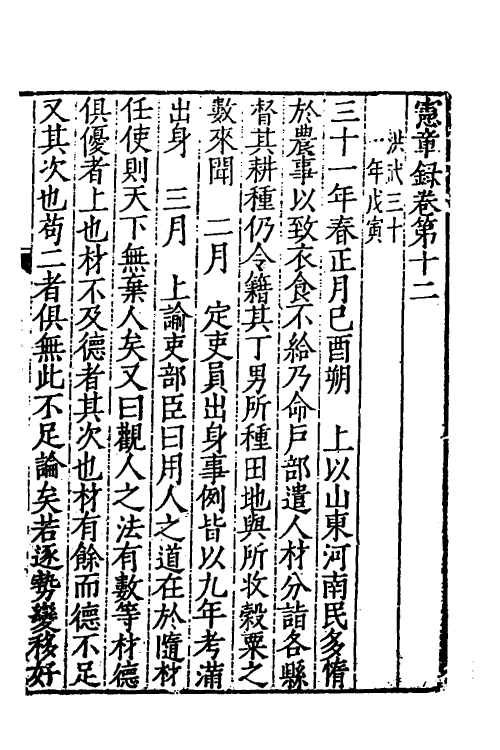 憲章録卷第十二
洪武三十
一年戊寅
三十一年春正月己酉朔　上以山東河南民多惰
於農事以致衣食不給乃命戸部遣人材分詣各縣
督其耕種仍令籍其丁男所種田地與所收穀粟之
數來聞　二月　定吏員出身事例皆以九年考滿
出身　三月　上諭吏部臣曰用人之道在於隨材
任使則天下無棄人矣又曰觀人之法有數等材德
俱優者上也材不及德者其次也材有餘而德不足
又其次也苟二者俱無此不足論矣若逐勢變移好